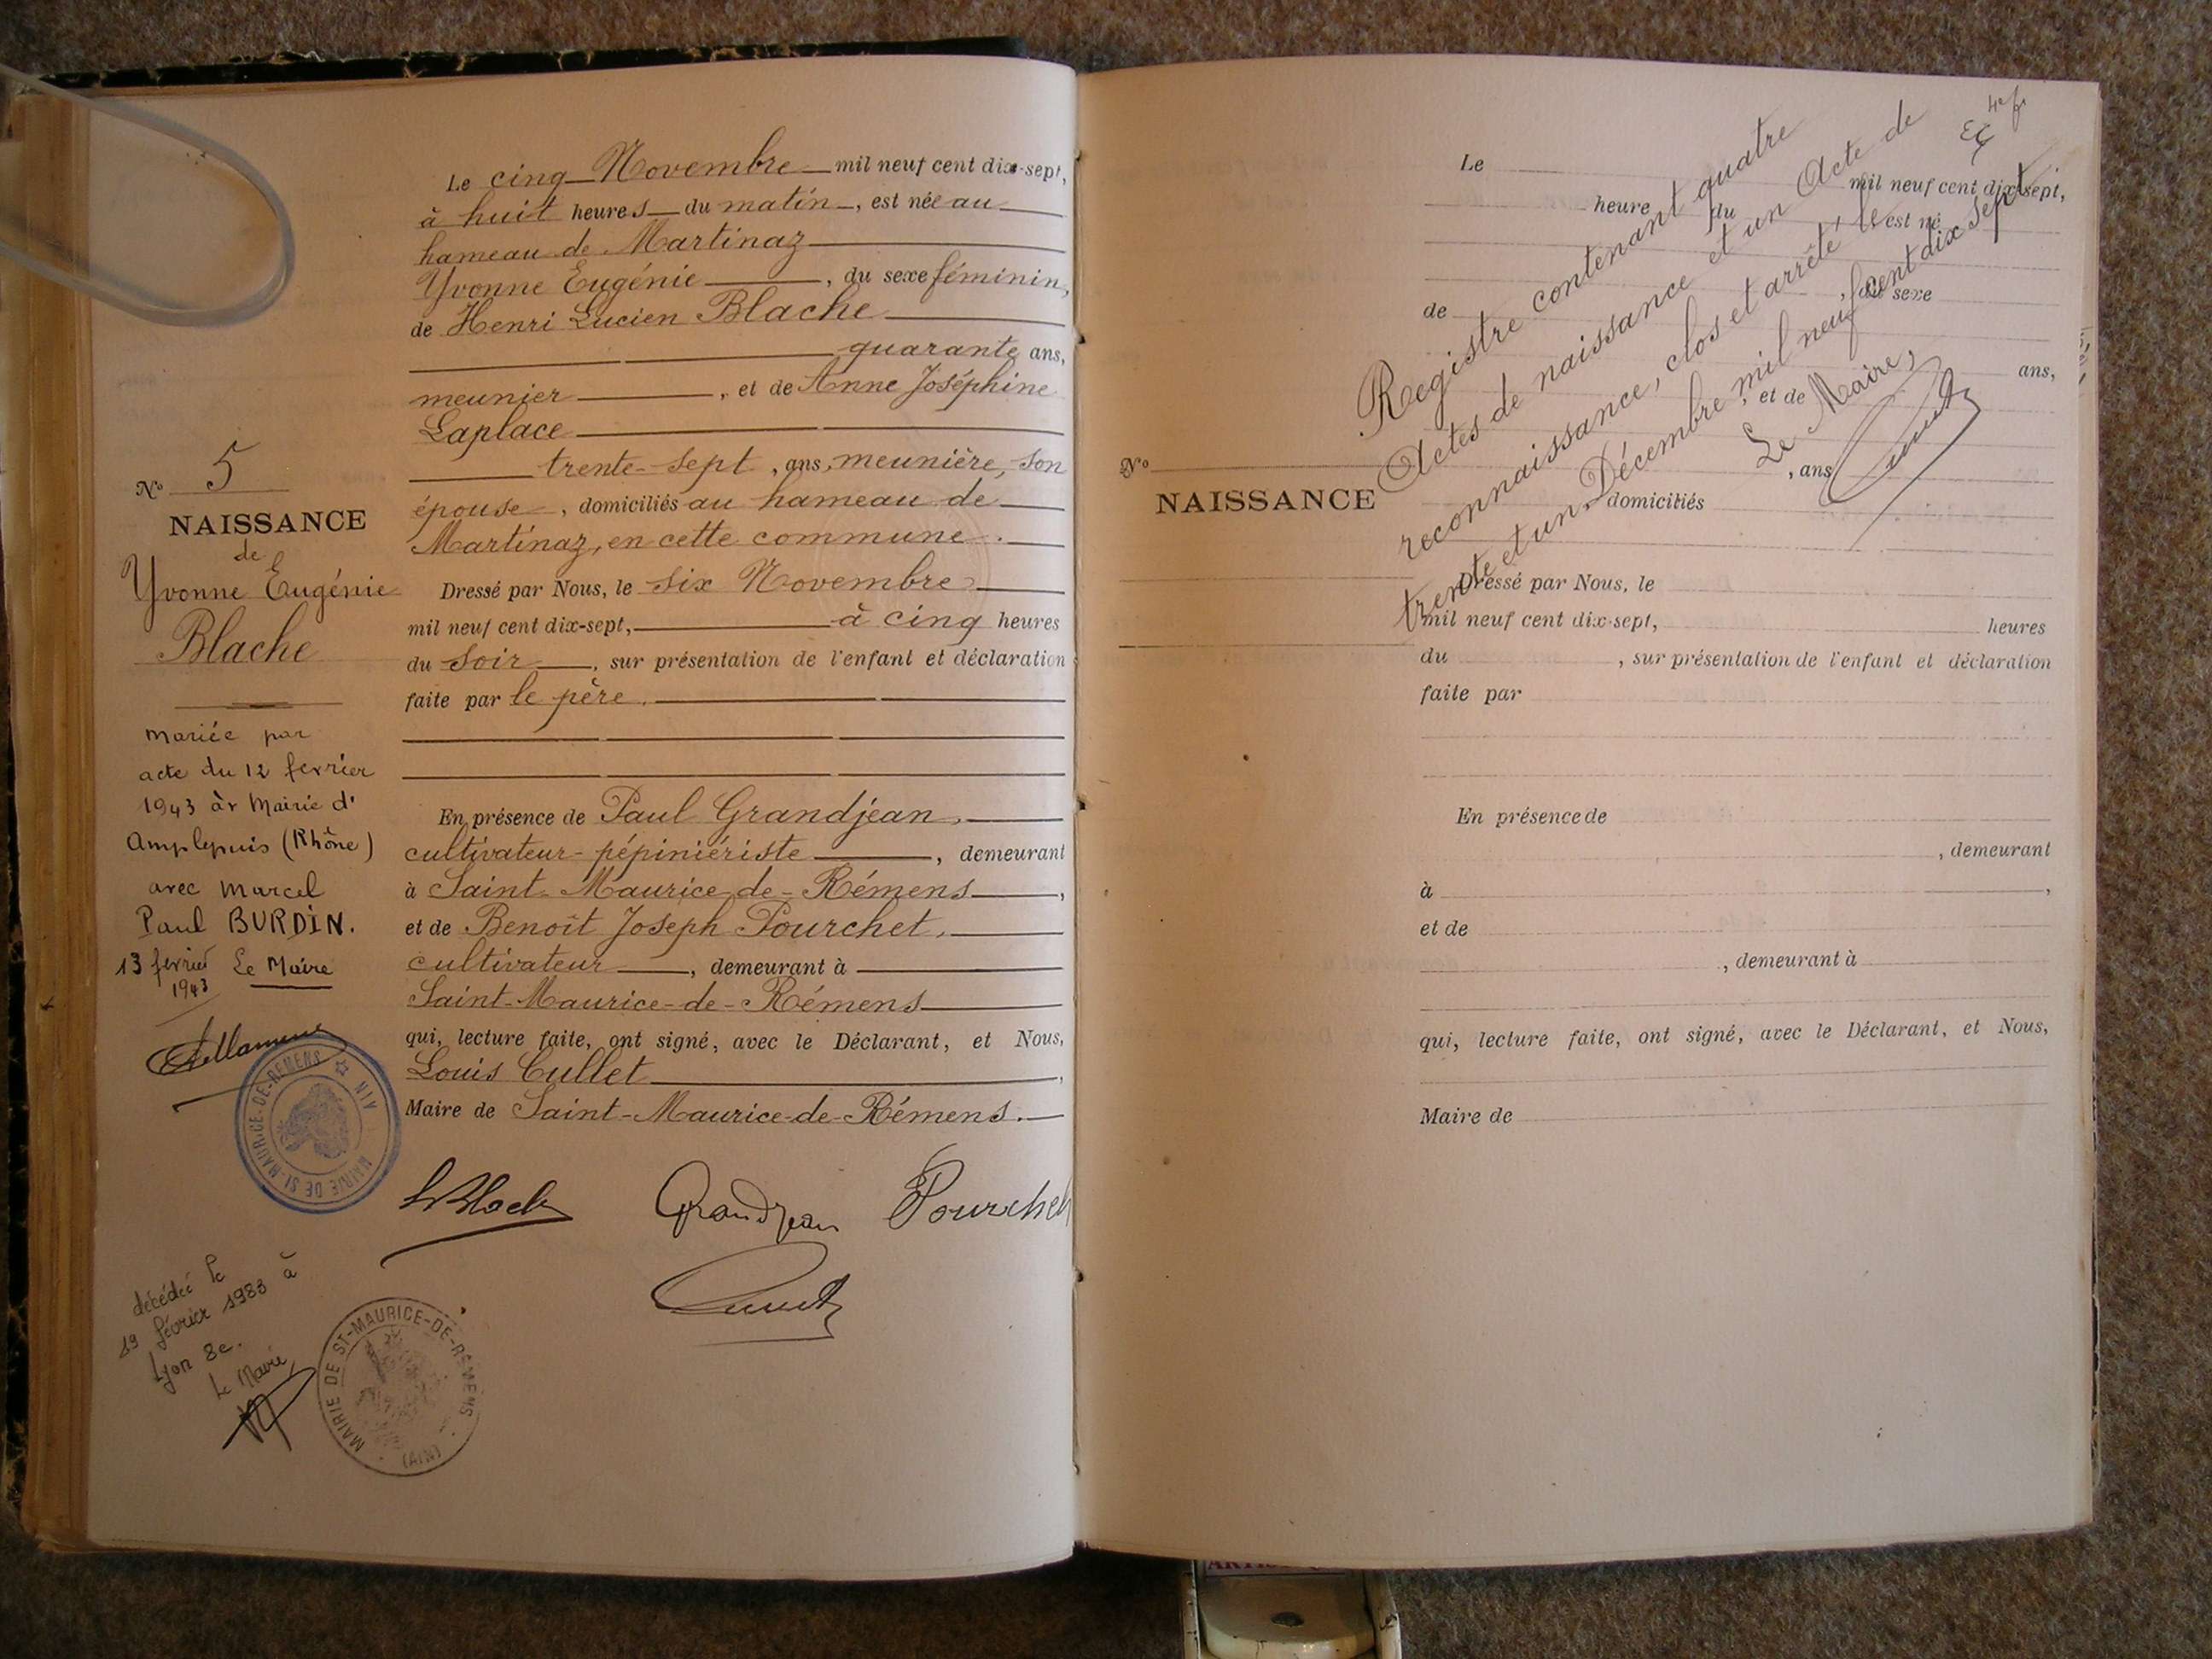 Le cinq Novembre mil neuf cent dix-sept,
à huit heures du matin, est née au
hameau de Martinaz
Yvonne Eugénie, du sexe féminin,
de Henri Lucien Blache
quarante ans,
meunier, et de Anne Joséphine
Laplace
trente-sept, ans, meunière, son
épouse, domiciliés au hameau de
Martinaz, en cette commune.
Dressé par Nous, le six Novembre
mil neuf cent dix-sept, à cinq heures
du soir, sur présentation de l'enfant et déclaration
faite par le père.
En présence de Paul Grandjean,
cultivateur-pépiniériste, demeurant
à Saint-Maurice-de-Rémens,
et de Benoît Joseph Pourchet,
cultivateur, demeurant à
Saint-Maurice-de-Rémens
qui, lecture faite, ont signé, avec le Déclarant, et Nous,
Louis Cullet,
Maire de Saint-Maurice-de-Rémens.
Grandjean Pourchet
No 5
NAISSANCE
de
Yvonne Eugénie
Blache
Mariée par
acte du 12 fevrier
1943 à Mairie d'
Amplepuis (Rhône)
avec Marcel
Paul BURDIN.
13 fevrier Le Maire
1943
MAIRIE DE ST-MAURICE-DE-REMENS AIN
décédée le
19 février 1983 à
Lyon 8e.
Le Maire,
MAIRIE DE ST-MAURICE-DE-REMENS (AIN)
Le
mil neuf cent dix-sept,
heure du
est né
, du sexe
de
ans,
, et de
, ans
domiciliés
No
NAISSANCE
Dressé par Nous, le
mil neuf cent dix-sept, heures
du , sur présentation de l'enfant et déclaration
faite par
En présence de
, demeurant
à ,
et de
, demeurant à
qui, lecture faite, ont signé, avec le Déclarant, et Nous,
Maire de
Registre contenant quatre
Actes de naissance et un Acte de
reconnaissance, clos et arrêté le
trente et un Décembre mil neuf cent dix sept
Le Maire,